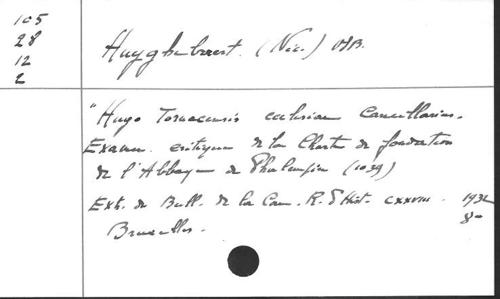 105
28
12
2
Huyghebaert. (Nic.) OSB.
"Hugo Tornacensis ecclesiae Cancellarius.
Examen critique de la Charte de fondation
de l'Abbaye de Phalempin (1039)
Ext. de Bull. de la Com. R. d'Hist. CXXVIII. 193
8°
Bruxelles.